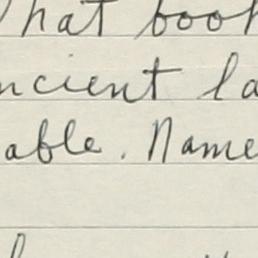 What book
ncient la
able. Name